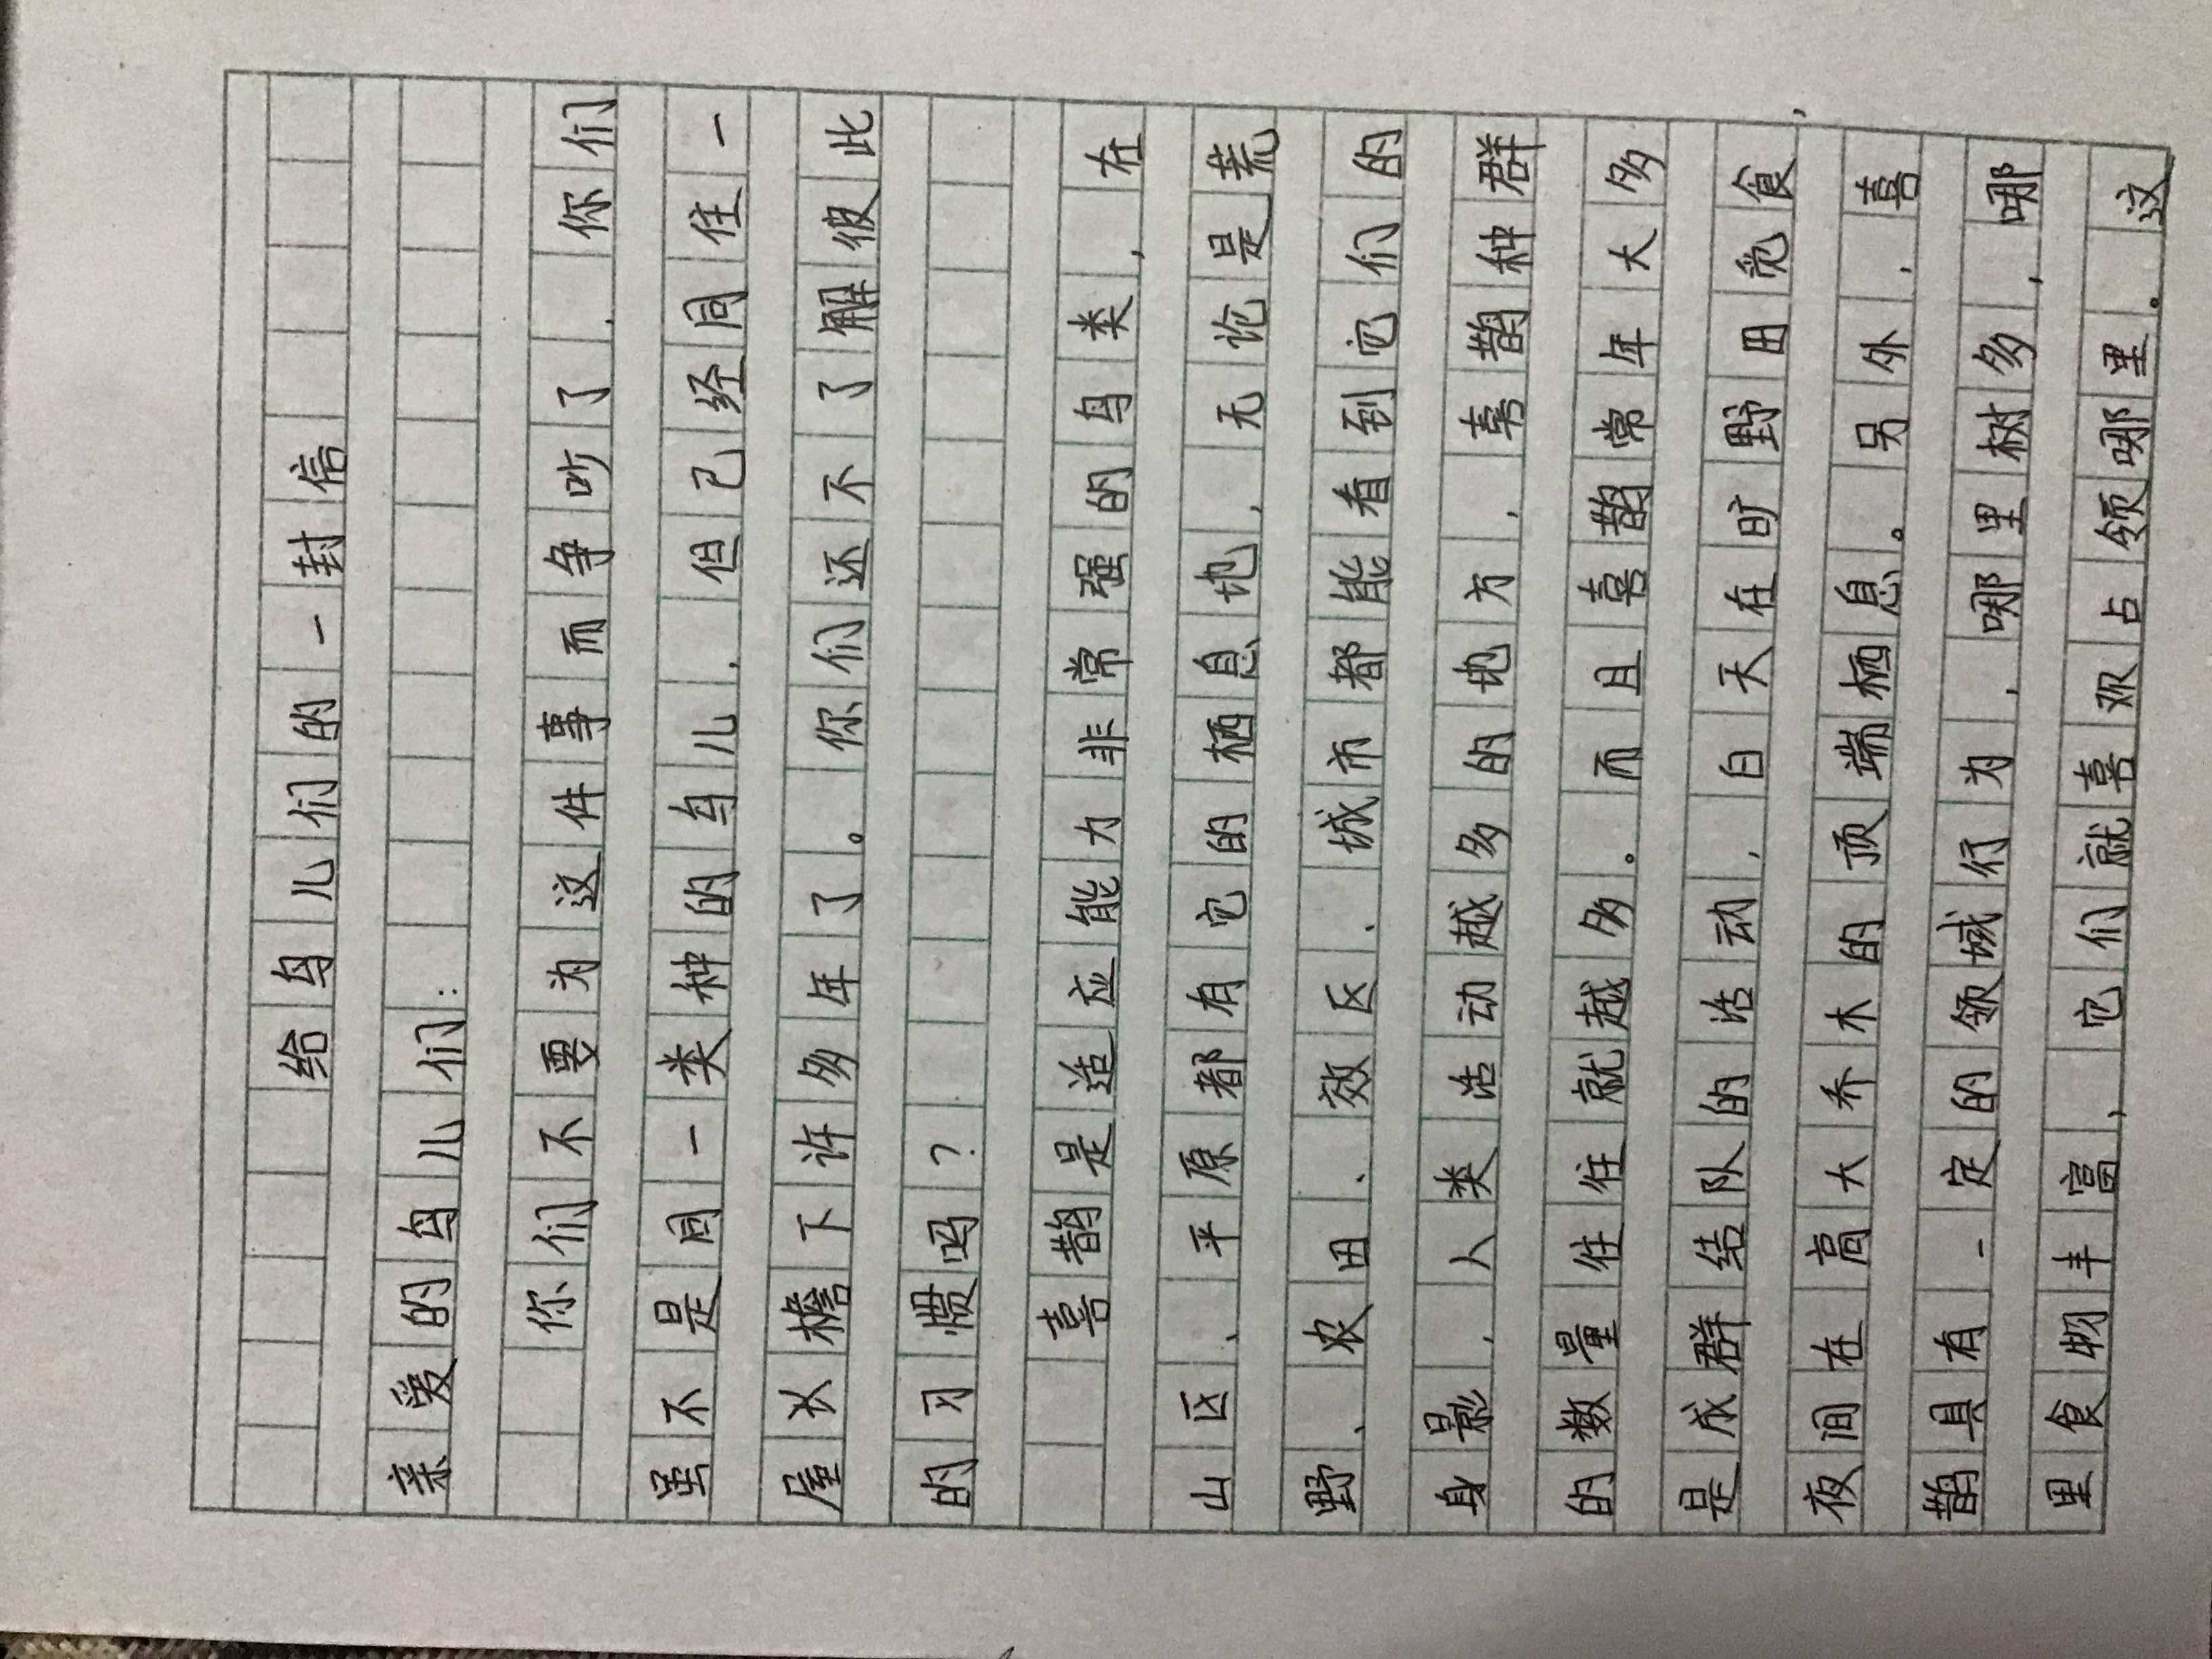 给鸟儿们的一封信
亲爱的鸟儿们:
你们不要为这件事而争吵了.你们
虽不是同一类种的鸟儿,但已经同住一
屋檐下许多年了。你们还不了解彼此
的习惯吗?
喜鹊是适应能力非常强的鸟类,在
山区、平原都有它的栖息地,无论是荒
野、农田、效区、城市都能看到它们的
身影,人类活动越多的地方,喜鹊种群
的数量往往就越多。而且喜鹊常年大多
是成群结队的活动,白天在旷野田觅食,
夜间在高大乔木的顶端栖息。另外,喜
鹊具有一定的领域行为,哪里树多,哪
里食物丰富,它们就喜欢占领哪里.这